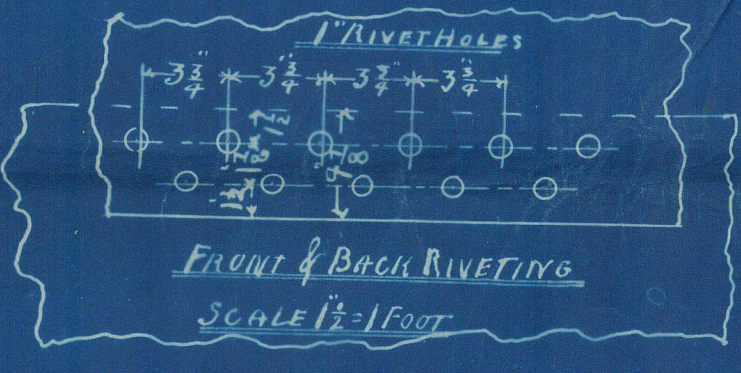 1" RIVET HOLES
3 3/4" 3 3/4" 3 3/4" 3 3/4"
1 1/2
1 7/8
1 1/2"
4 7/8
FRONT & BACK RIVETING
SCALE 1 1/2" = 1 FOOT